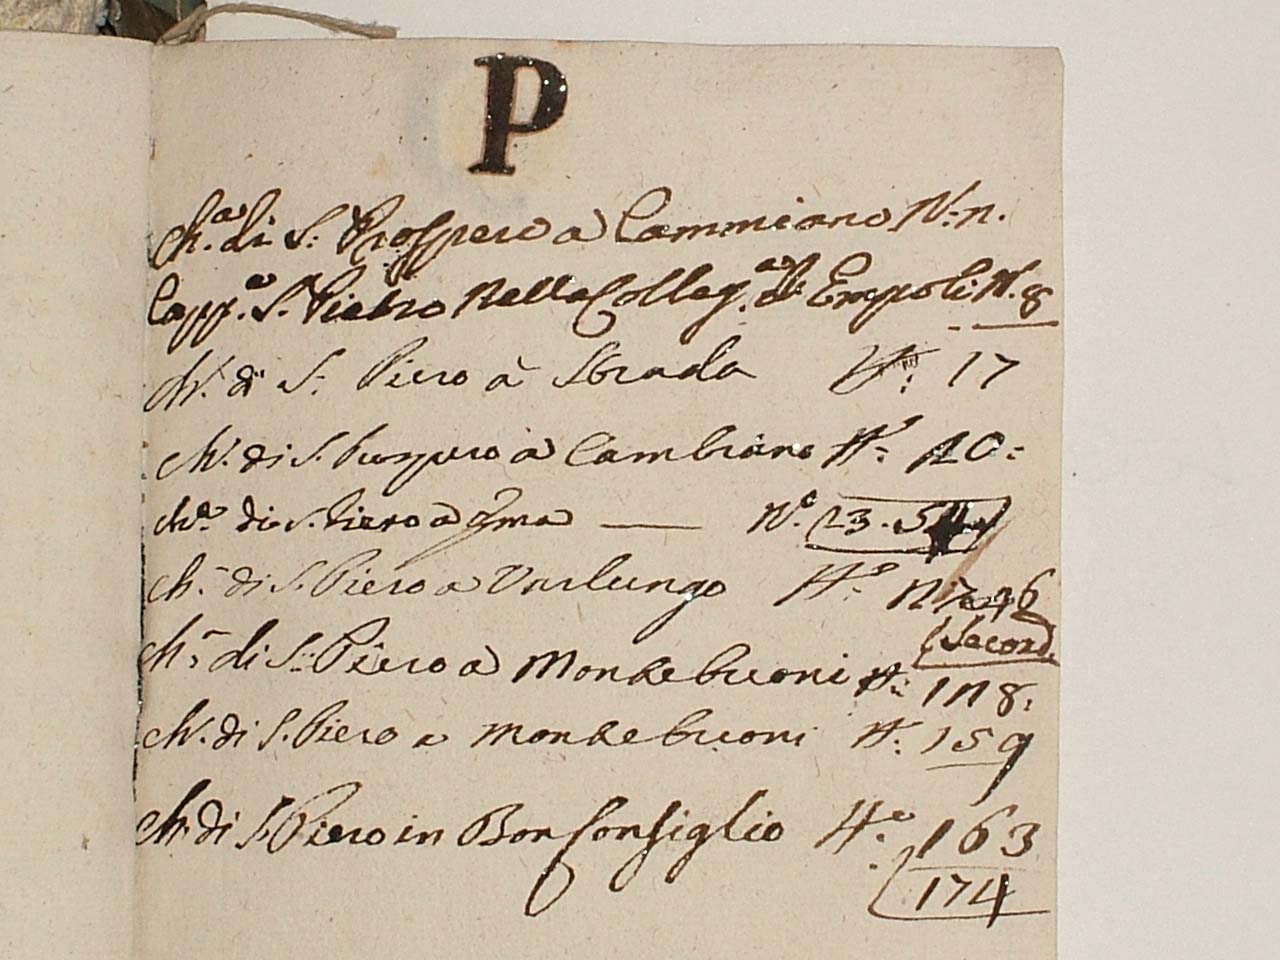 P
Ch.a di S: Prospero a Cammiano N: 11.
Capp.a S. Pietro nella Colleg.a di Empoli N. 8
Ch. di S: Piero à Strada N: 17
Ch. di S. Prospero a Cambiano N.o 20:
Ch.a di S. Piero a Ema — N.o 23. 54
Ch. di S. Piero a Varlungo N.o 46
Ch. di S: Piero a Montebuoni N: 118.
Ch. di S. Piero a Montebuoni N: 159
Ch. di S. Piero in Bonconsiglio N.o 163
174